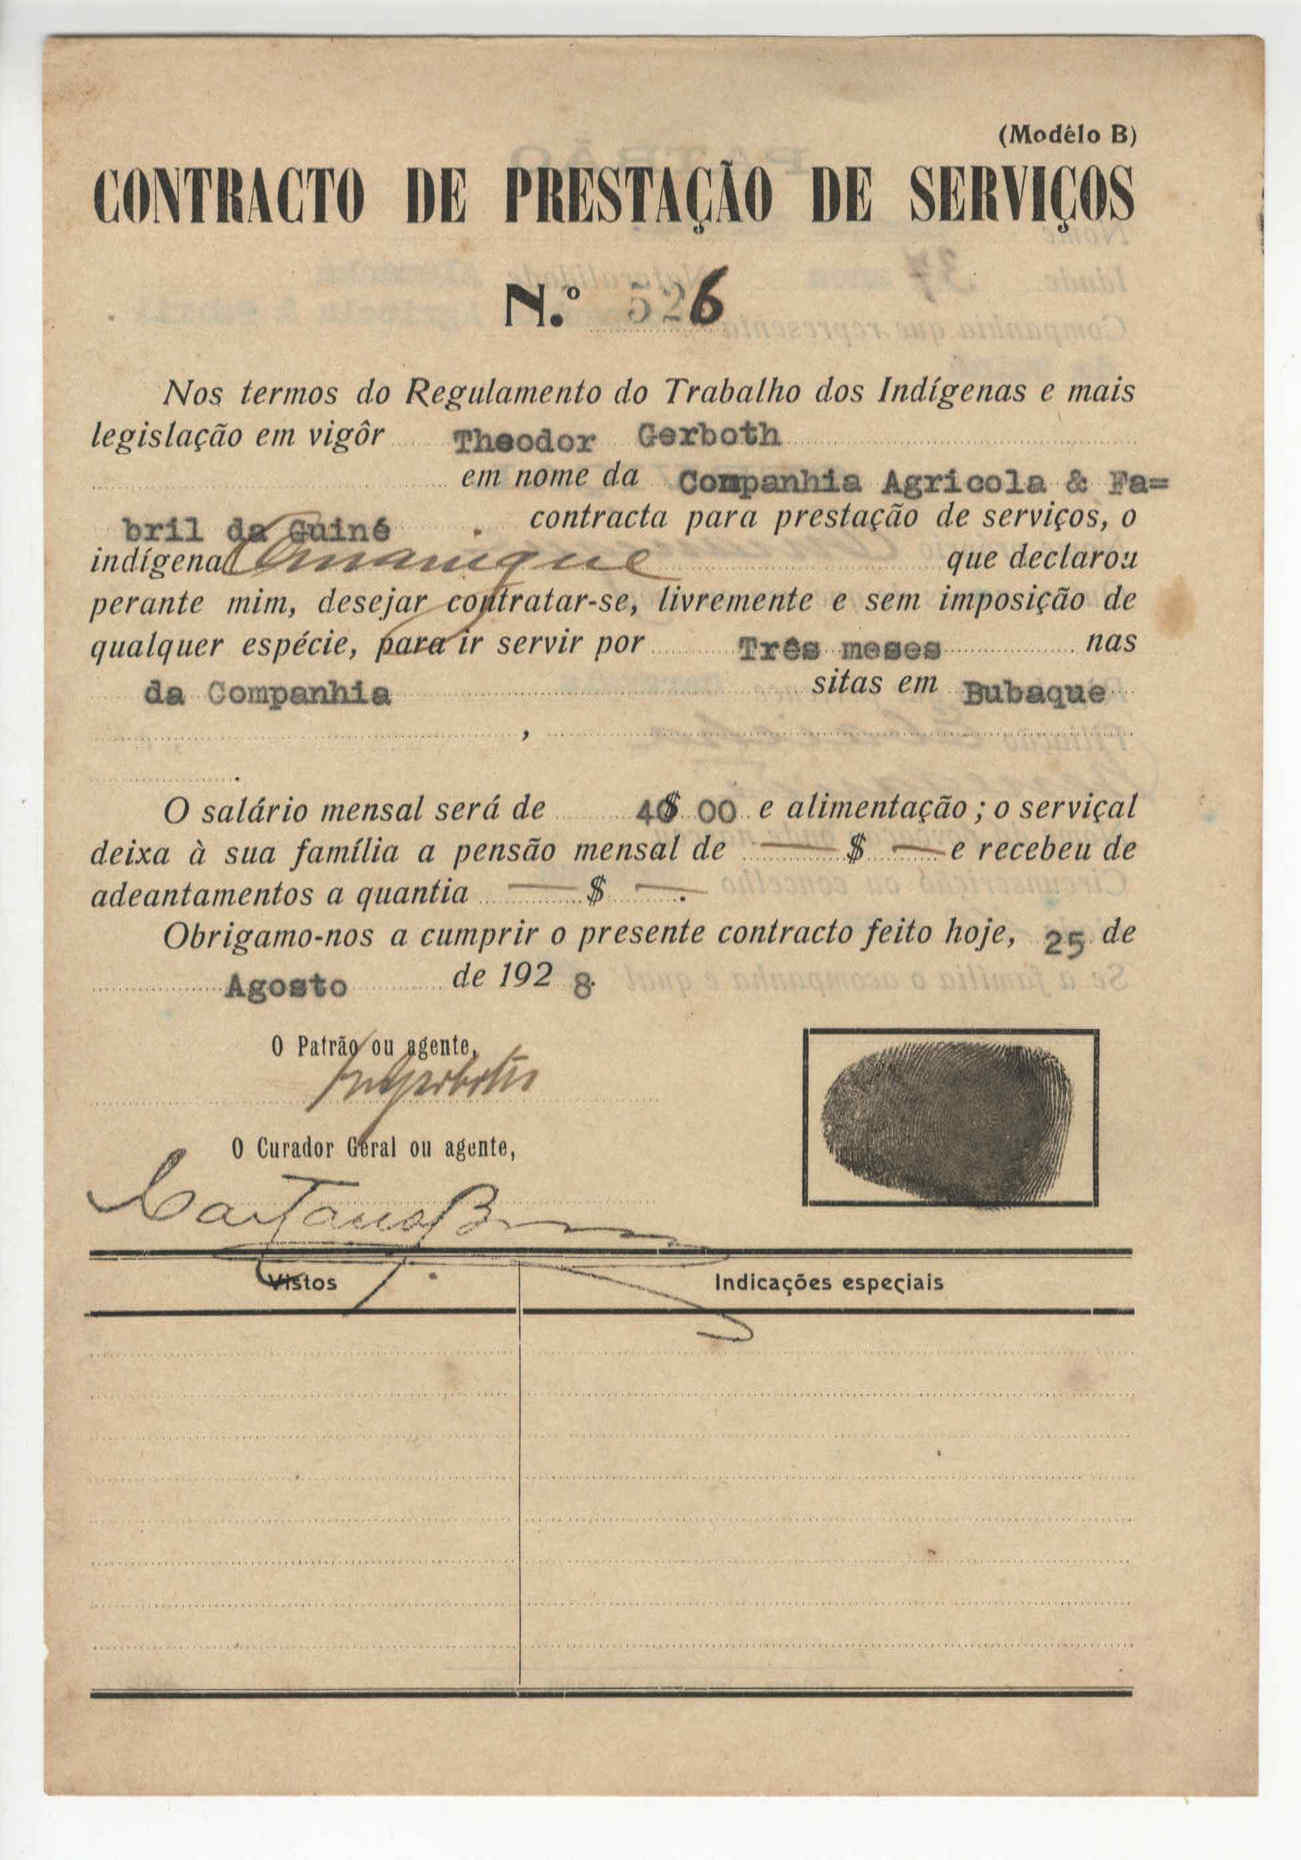 (Modêlo B)
CONTRACTO DE PRESTAÇÃO DE SERVIÇOS
N.º 526
Nos termos do Regulamento do Trabalho dos Indígenas e mais
legislação em vigôr Theodor Gerboth
em nome da Companhia Agricola & Fa=
bril da Guiné . contracta para prestação de serviços, o
indígena que declarou
perante mim, desejar contratar-se, livremente e sem imposição de
qualquer espécie, para ir servir por Três meses nas
da Companhia sitas em Bubaque
,
.
O salário mensal será de 40$ 00 e alimentação; o serviçal
deixa à sua família a pensão mensal de — $ — e recebeu de
adeantamentos a quantia — $ — .
Obrigamo-nos a cumprir o presente contracto feito hoje, 25 de
Agosto de 192 8.
O Patrão ou agente,
O Curador Geral ou agente,
Vistos Indicações especiais